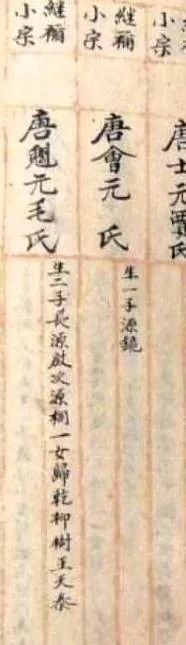 繼禰小宗
唐士元賈氏
繼禰小宗
唐會元 氏
生一子源鏡
繼禰小宗
唐魁元毛氏
生二子長源啟次源桐一女歸乾柳樹王天泰